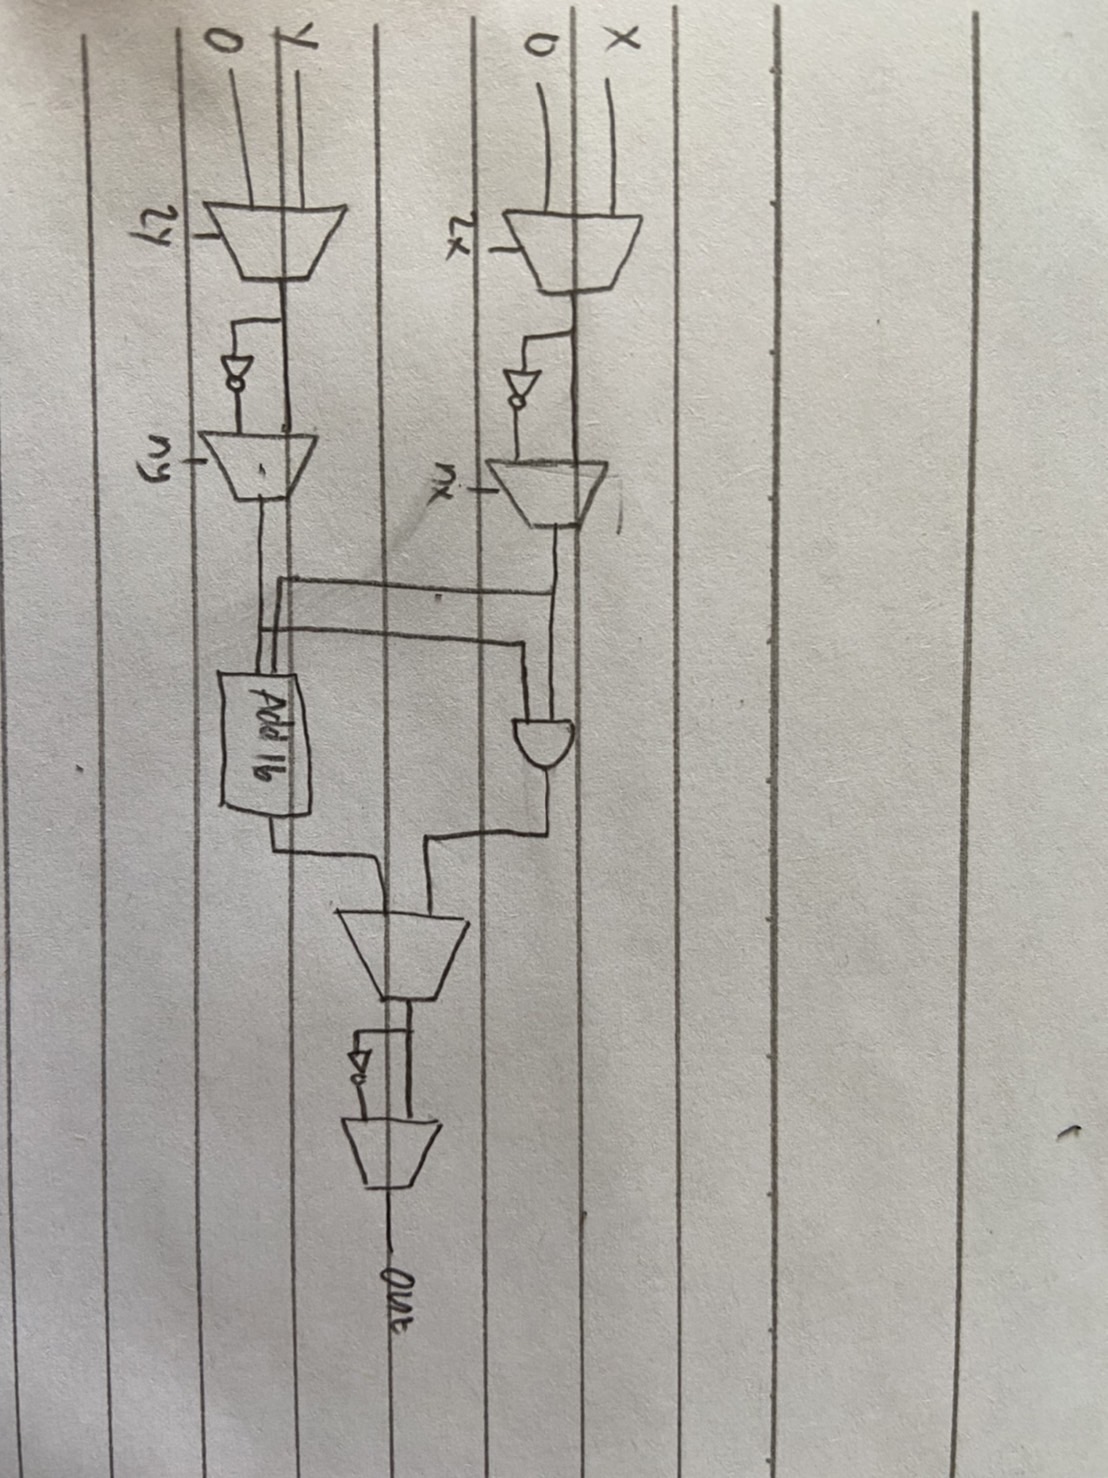 X
0
zx
nx
Y
0
zy
ny
Add 16
out